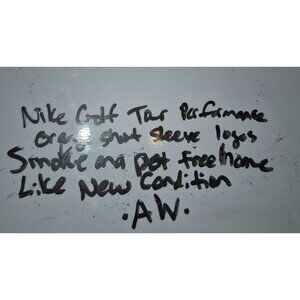 Nike Golf Tour Performance
orange short sleeve logos
Smoke and pet free home
Like New Condition
.AW.